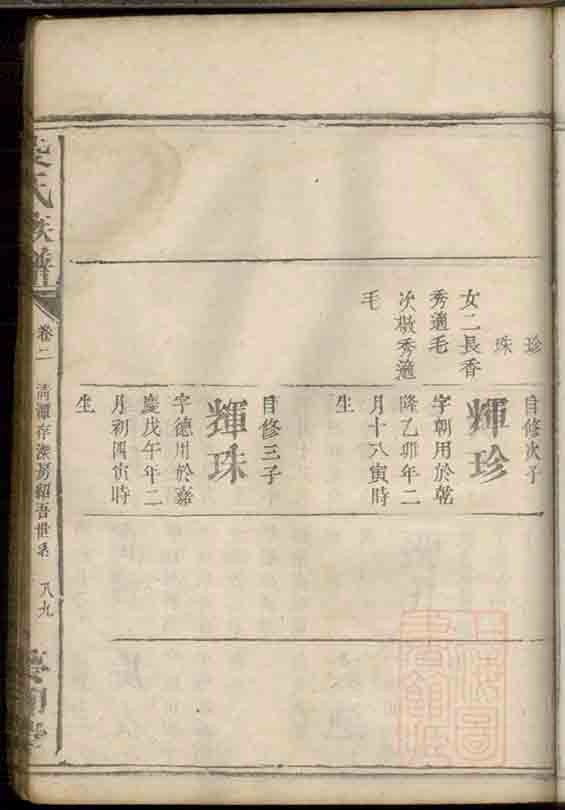 珍
珠
女二長香
秀適毛
次梅秀適
毛
自修次子
輝珍
字朝用於乾
隆乙卯年二
月十八寅時
生
自修三子
輝珠
字德用於嘉
慶戊午年二
月初四寅時
生
氏族譜
卷二
清潭存淙房紹吾世系
八九
上海圖
書館藏